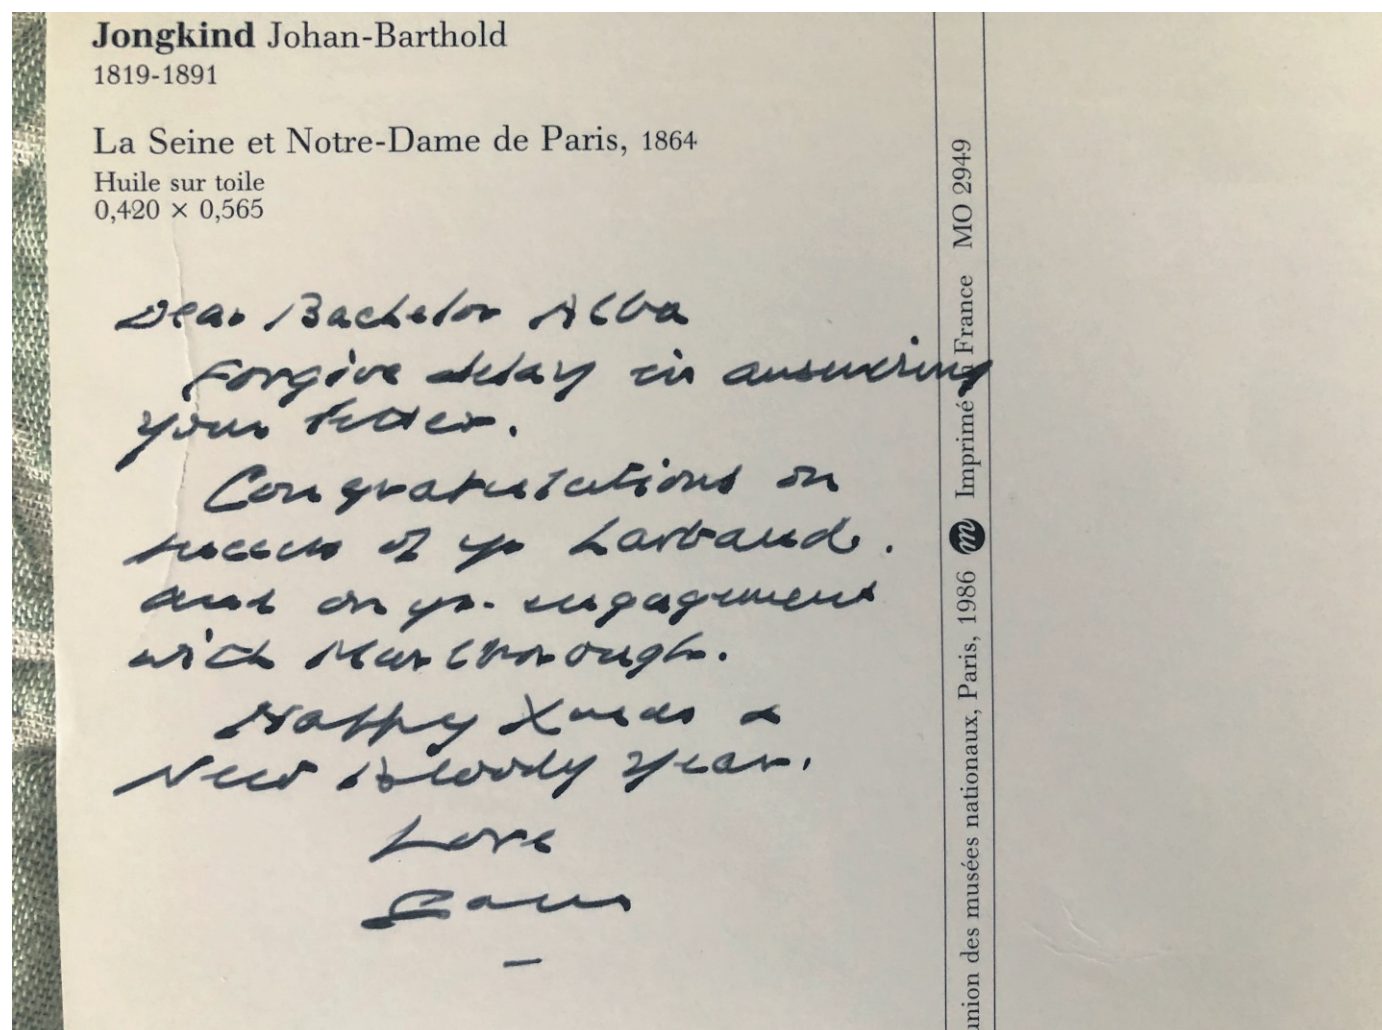 Jongkind Johan-Barthold
1819-1891
La Seine et Notre-Dame de Paris, 1864
Huile sur toile
0,420 × 0,565
Dear Bachelor Alba
Forgive delay in answering
your letter.
Congratulations on
success of yr Larbaud.
and on yr. engagement
with Marlborough.
Happy Xmas &
New bloody Year.
Love
Sam
union des musées nationaux, Paris, 1986 m Imprimé France MO 2949